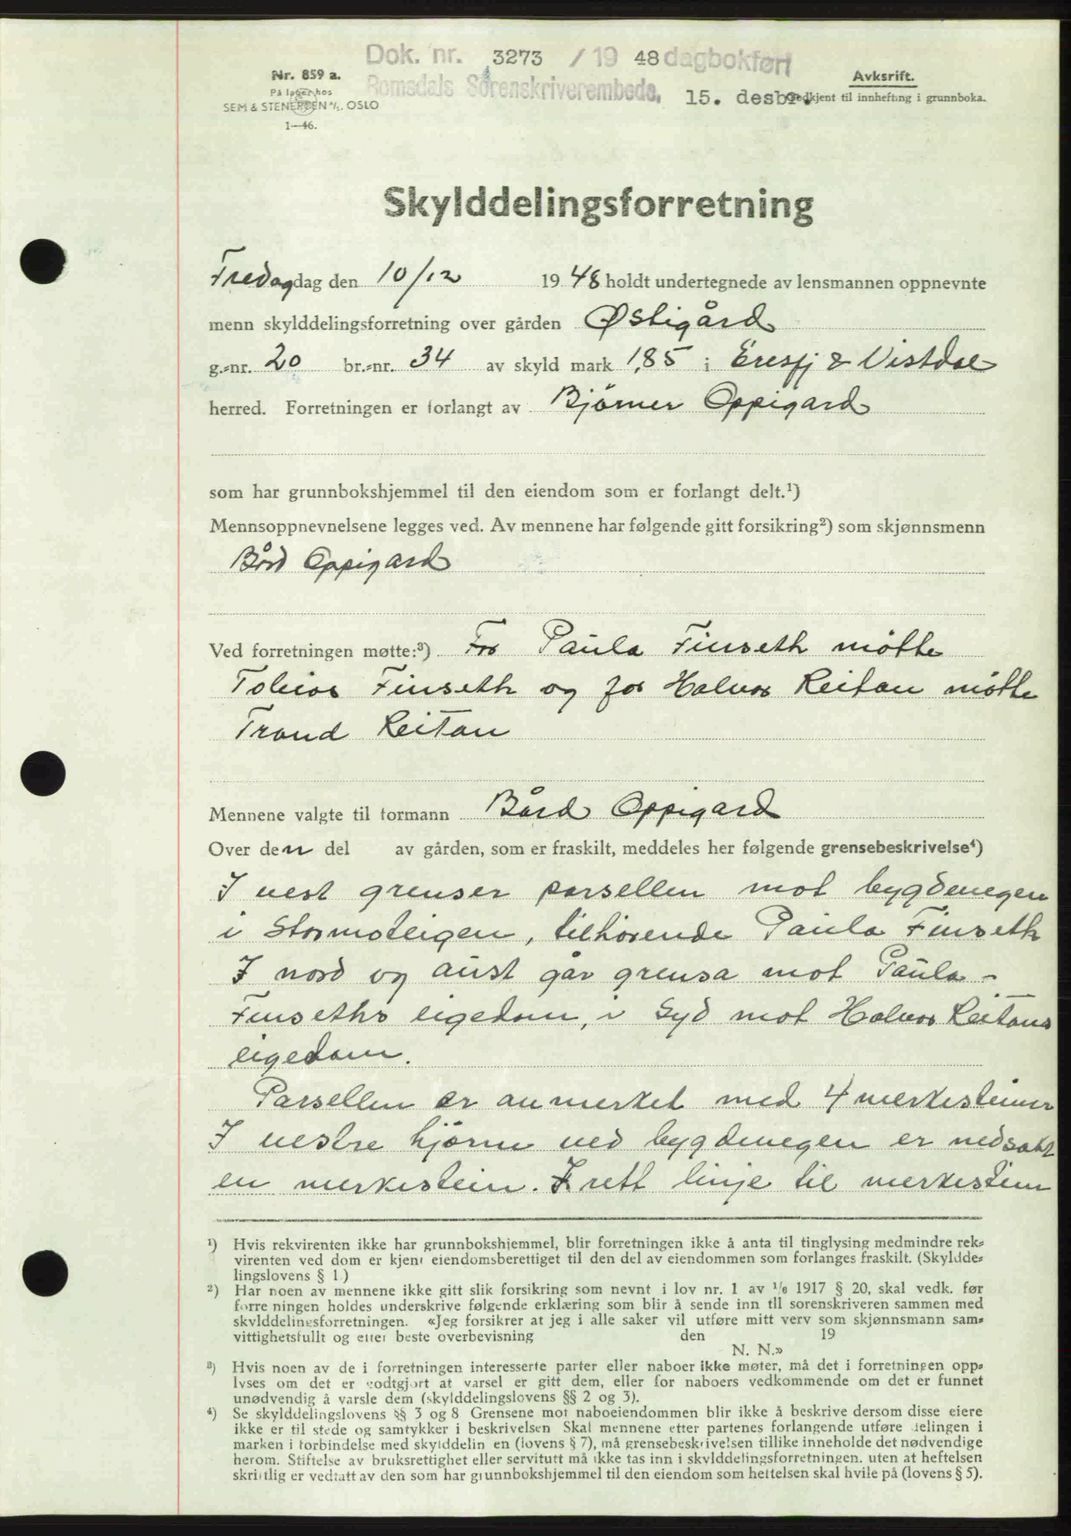 Dok. nr. 3273 / 19 48 dagbokført
Romsdals Sorenskriverembede, 15. desbr.
Nr. 859 a.
På lager hos
SEM & STENERSEN A/S. OSLO
1—46.
Avkskrift.
Godkjent til innhefting i grunnboka.
Skylddelingsforretning
Fredag dag den 10/12 19 48 holdt undertegnede av lensmannen oppnevnte
menn skylddelingsforretning over gården Østigård
g.-nr. 20 br.-nr. 34 av skyld mark 1,85 i Eresfj & Vistdal
herred. Forretningen er forlangt av Bjørner Oppigard
som har grunnbokshjemmel til den eiendom som er forlangt delt.¹)
Mennsoppnevnelsene legges ved. Av mennene har følgende gitt forsikring²) som skjønnsmenn
Bård Oppigard
Ved forretningen møtte:³) For Paula Finseth møtte
Tobias Finseth og for Halvor Reitan møtte
Trond Reitan
Mennene valgte til formann Bård Oppigard
Over den del av gården, som er fraskilt, meddeles her følgende grensebeskrivelse⁴)
I vest grenser parsellen mot bygdevegen
i Stormoteigen, tilhørende Paula Finseth
I nord og aust går grensa mot Paula
Finseths eigedom, i Syd mot Halvor Reitans
eigedom.
Parsellen er anmerket med 4 merkesteiner
I vestre hjørne ved bygdevegen er nedsatt
en merkestein. I rett linje til merkestein
¹) Hvis rekvirenten ikke har grunnbokshjemmel, blir forretningen ikke å anta til tinglysing medmindre rek-
virenten ved dom er kjent eiendomsberettiget til den del av eiendommen som forlanges fraskilt. (Skyldde-
lingslovens § 1)
²) Har noen av mennene ikke gitt slik forsikring som nevnt i lov nr. 1 av 1/6 1917 § 20, skal vedk. før
forretningen holdes underskrive følgende erklæring som blir å sende inn til sorenskriveren sammen med
skylddelingsforretningen. «Jeg forsikrer at jeg i alle saker vil utføre mitt verv som skjønnsmann sam-
vittighetsfullt og etter beste overbevisning den 19
N. N.»
³) Hvis noen av de i forretningen interesserte parter eller naboer ikke møter, må det i forretningen opp-
lyses om det er godtgjort at varsel er gitt dem, eller for naboers vedkommende om det er funnet
unødvendig å varsle dem (skylddelingslovens §§ 2 og 3).
⁴) Se skylddelingslovens §§ 3 og 8 Grensene mot naboeiendommen blir ikke å beskrive dersom disse eiere
ikke er til stede og samtykker i beskrivelsen Skal mennene etter partenes forlangende utføre delingen i
marken i forbindelse med skylddelingen (lovens § 7), må grensebeskrivelsen tillike inneholde det nødvendige
herom. Stiftelse av bruksrettighet eller servitutt må ikke tas inn i skylddelingsforretningen, uten at heftelsen
skriftlig er vedtatt av den som har grunnbokshjemmel til den eiendom som heftelsen skal hvile på (lovens § 5).